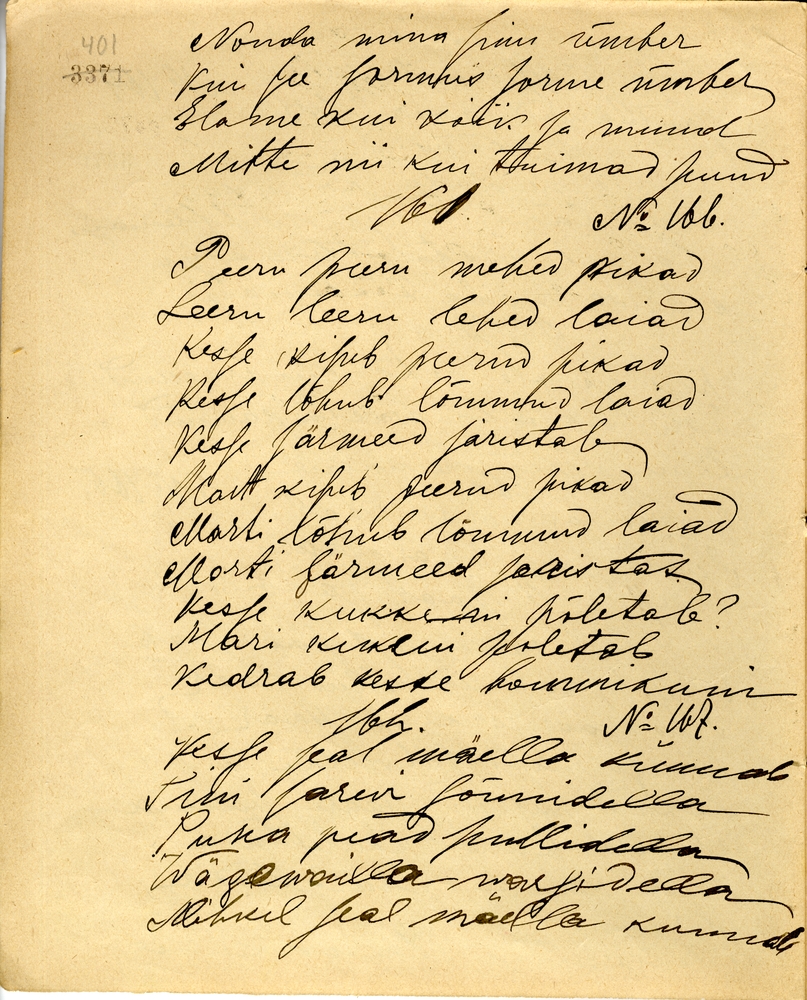 401
3371
Nonda mina sinu ümber
Kui see sormus sorme ümber
Elame kui kõik ja muud
Mitte nii kui tuimad puud
161. No 166.
Peeru peeru mehed pikad
Leeru leeru lehed laiad
Kesse kisub peerud pikad
Kesse lõhub lõmmud laiad
Kesse särmeed järistab
Matt kisub peerud pikad
Marti lõhub lõmmud laiad
Marti särmeed järistas
Kesse kukkeni põletab?
Mari kukeni poletab
Kedrab keske hommikuni
No 167.
Kesse seal mäella künnab
Tini sarvi sõnnidella
Puna pead pullidella
Wägewailla warsidella
Mihkel seal mäella kunnab